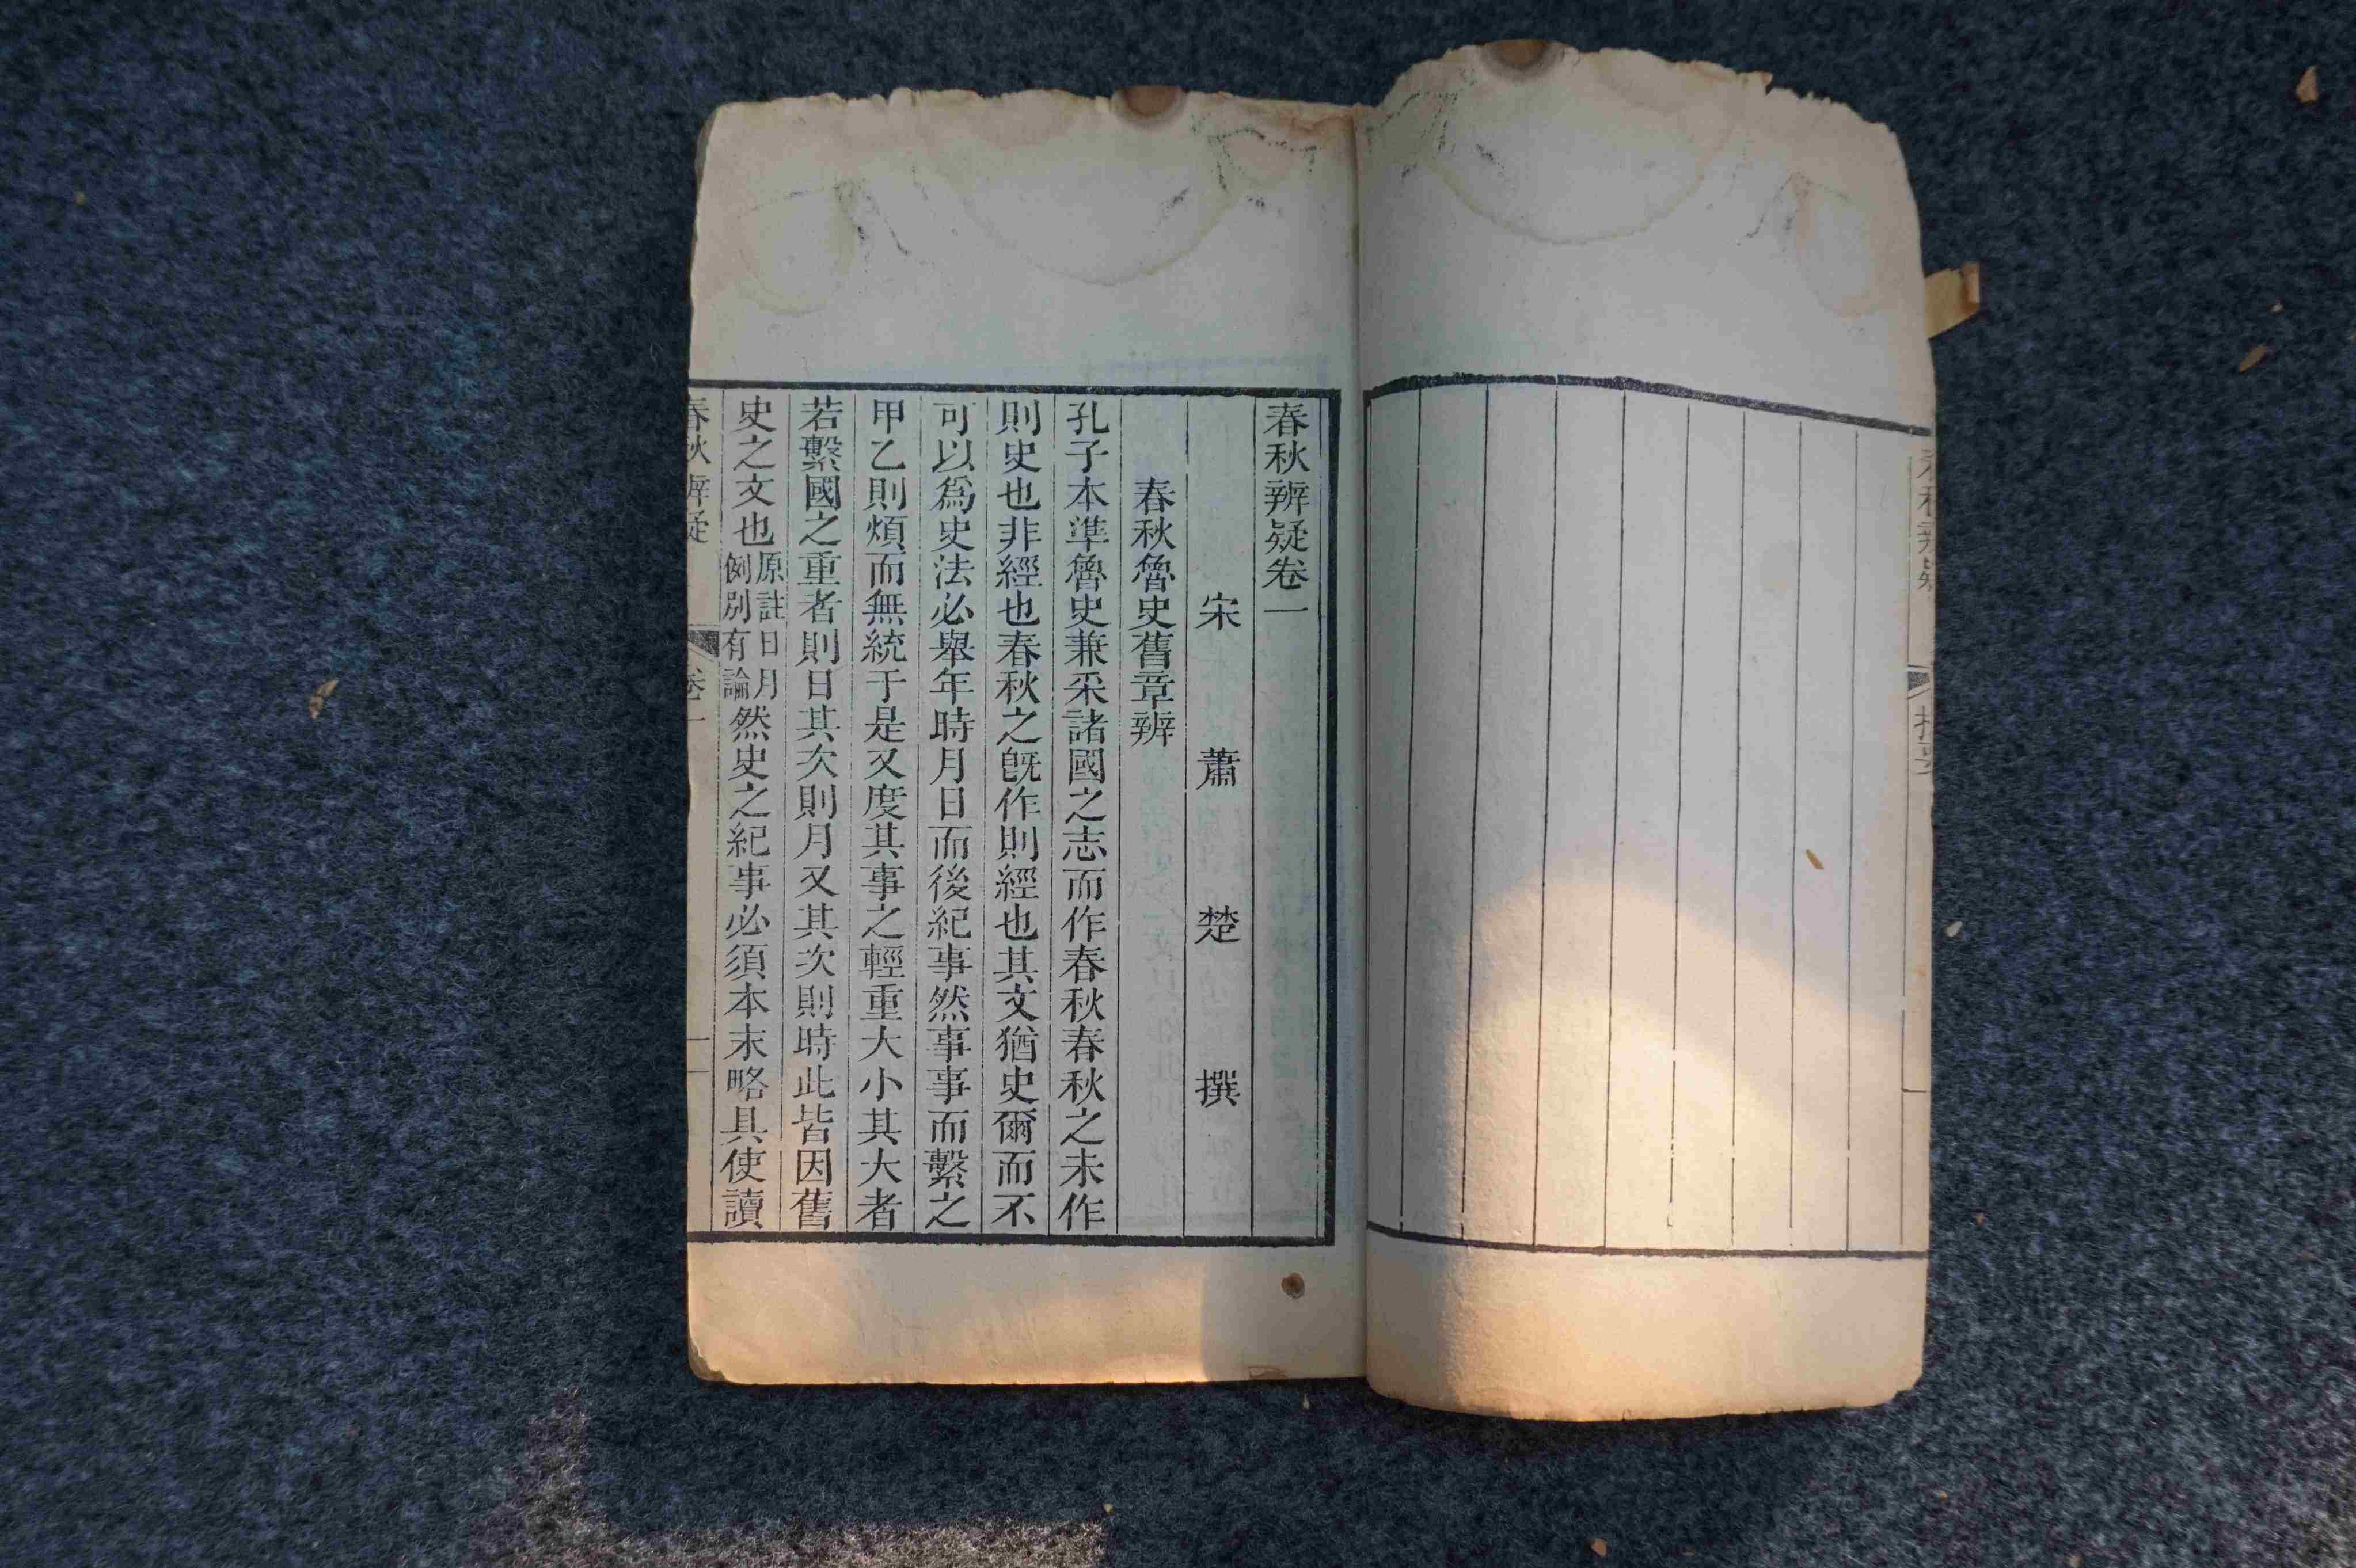 春秋辨疑卷一
宋 蕭 楚 撰
春秋魯史舊章辨
孔子本準魯史兼采諸國之志而作春秋春秋之未作
則史也非經也春秋之旣作則經也其文猶史爾而不
可以爲史法必舉年時月日而後紀事然事事而繫之
甲乙則煩而無統于是又度其事之輕重大小其大者
若繫國之重者則日其次則月又其次則時此皆因舊
史之文也原註日月例別有論然史之紀事必須本末略具使讀
春秋辨疑 卷一 一
春秋辨疑 提要